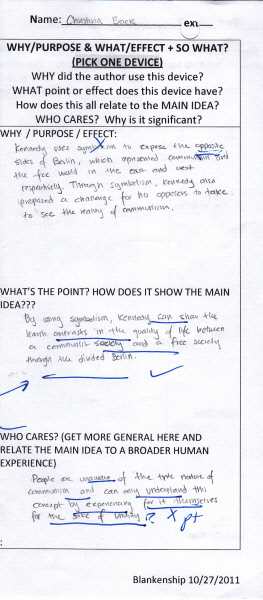 Name: Christina Baek ext
WHY/PURPOSE & WHAT/EFFECT + SO WHAT?
(PICK ONE DEVICE)
WHY did the author use this device?
WHAT point or effect does this device have?
How does this all relate to the MAIN IDEA?
WHO CARES? Why is it significant?
WHY / PURPOSE / EFFECT:
Kennedy uses symbolism to expose the opposite
sides of Berlin, which represented communism and
the free world in the east and west
respectively. Through symbolism, Kennedy also
proposed a challenge for his opposers to take
to "see the reality of communism.
WHAT'S THE POINT? HOW DOES IT SHOW THE MAIN
IDEA???
By using symbolism, Kennedy can show the
harsh contrasts in the quality of life between
a communist society and a free society
through the divided Berlin.
WHO CARES? (GET MORE GENERAL HERE AND
RELATE THE MAIN IDEA TO A BROADER HUMAN
EXPERIENCE)
People are unaware of the true nature of
communism and can only understand this
concept by experiencing for it themselves
for the sake of ? X pt
:
Blankenship 10/27/2011